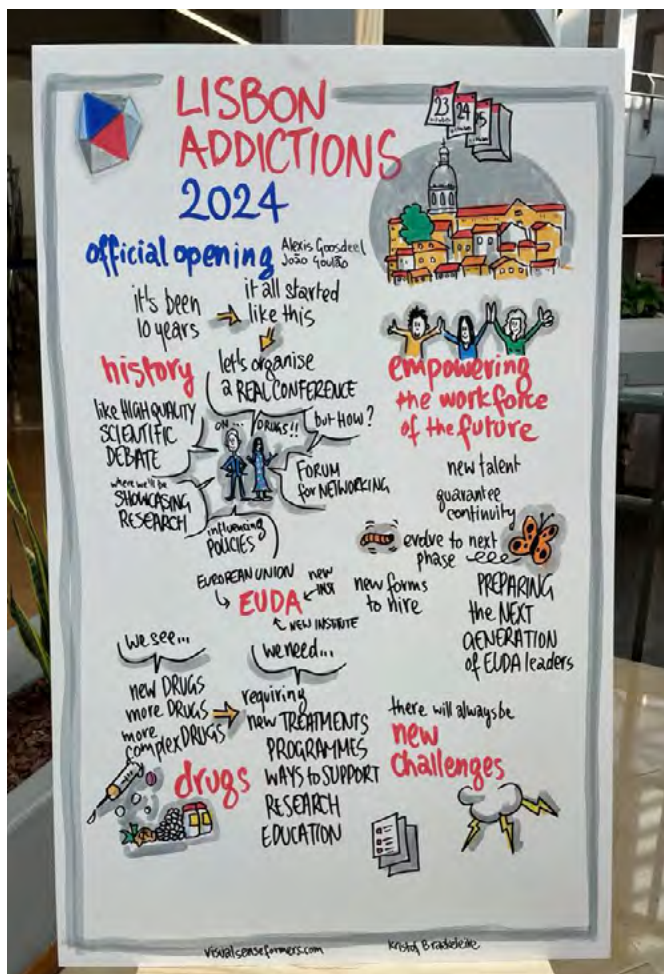 LISBON
ADDICTIONS
2024
23
24
25
official opening
Alexis Goosdeel
João Goulão
it's been
10 years
it all started
like this
history
let's organise
a REAL CONFERENCE
ON...
DRUGS!!
but HOW?
like HIGH QUALITY
SCIENTIFIC
DEBATE
where we'll be
SHOWCASING
RESEARCH
FORUM
for NETWORKING
influencing
POLICIES
empowering
the workforce
of the future
new talent
guarantee
continuity
evolve to next
phase
new forms
to hire
PREPARING
the NEXT
GENERATION
of EUDA leaders
EUROPEAN UNION
new
EUDA
NEW INSTITUTE
we see...
new DRUGS
more DRUGS
more
complex DRUGS
drugs
we need...
requiring
new TREATMENTS
PROGRAMMES
WAYS to SUPPORT
RESEARCH
EDUCATION
there will always be
new
challenges
visualsenseformers.com
Kristof